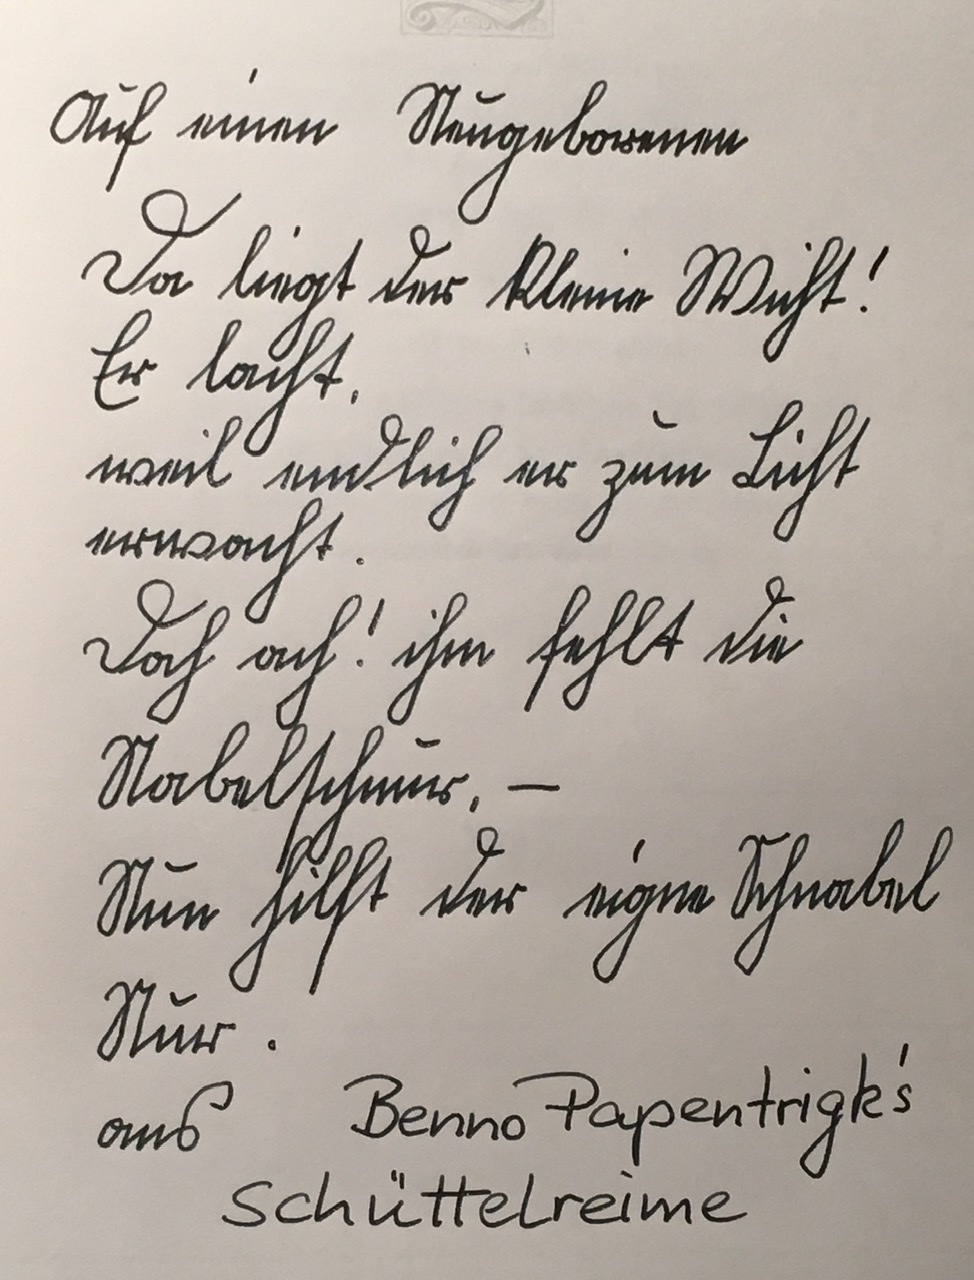 Auf einen Neugeborenen
Da liegt der kleine Wicht!
Er lacht,
weil endlich er zum Licht
erwacht.
Doch ach! ihm fehlt die
Nabelschnur, —
Nun hilft der eigne Schnabel
Nur.
aus Benno Papentrigk's
Schüttelreime